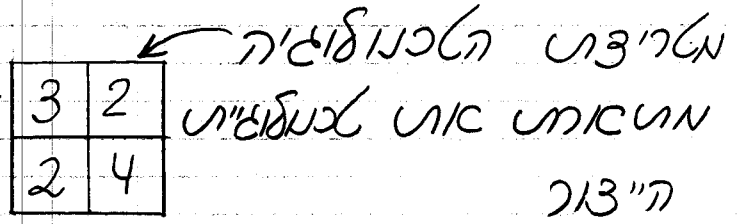 מטריצת הטכנולוגיה
3 2 מתארת את טכנולוגיית
2 4
הייצור